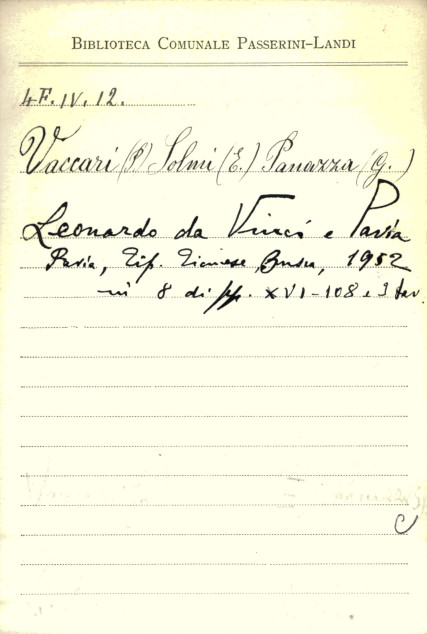 BIBLIOTECA COMUNALE PASSERINI-LANDI
4F.IV.12.
Vaccari (P.) Solmi (E.) Panazza (G.)
Leonardo da Vinci e Pavia
Pavia, Tip. Ticinese, 1952
in 8 di pp. XVI-108 e 3 tav.
C